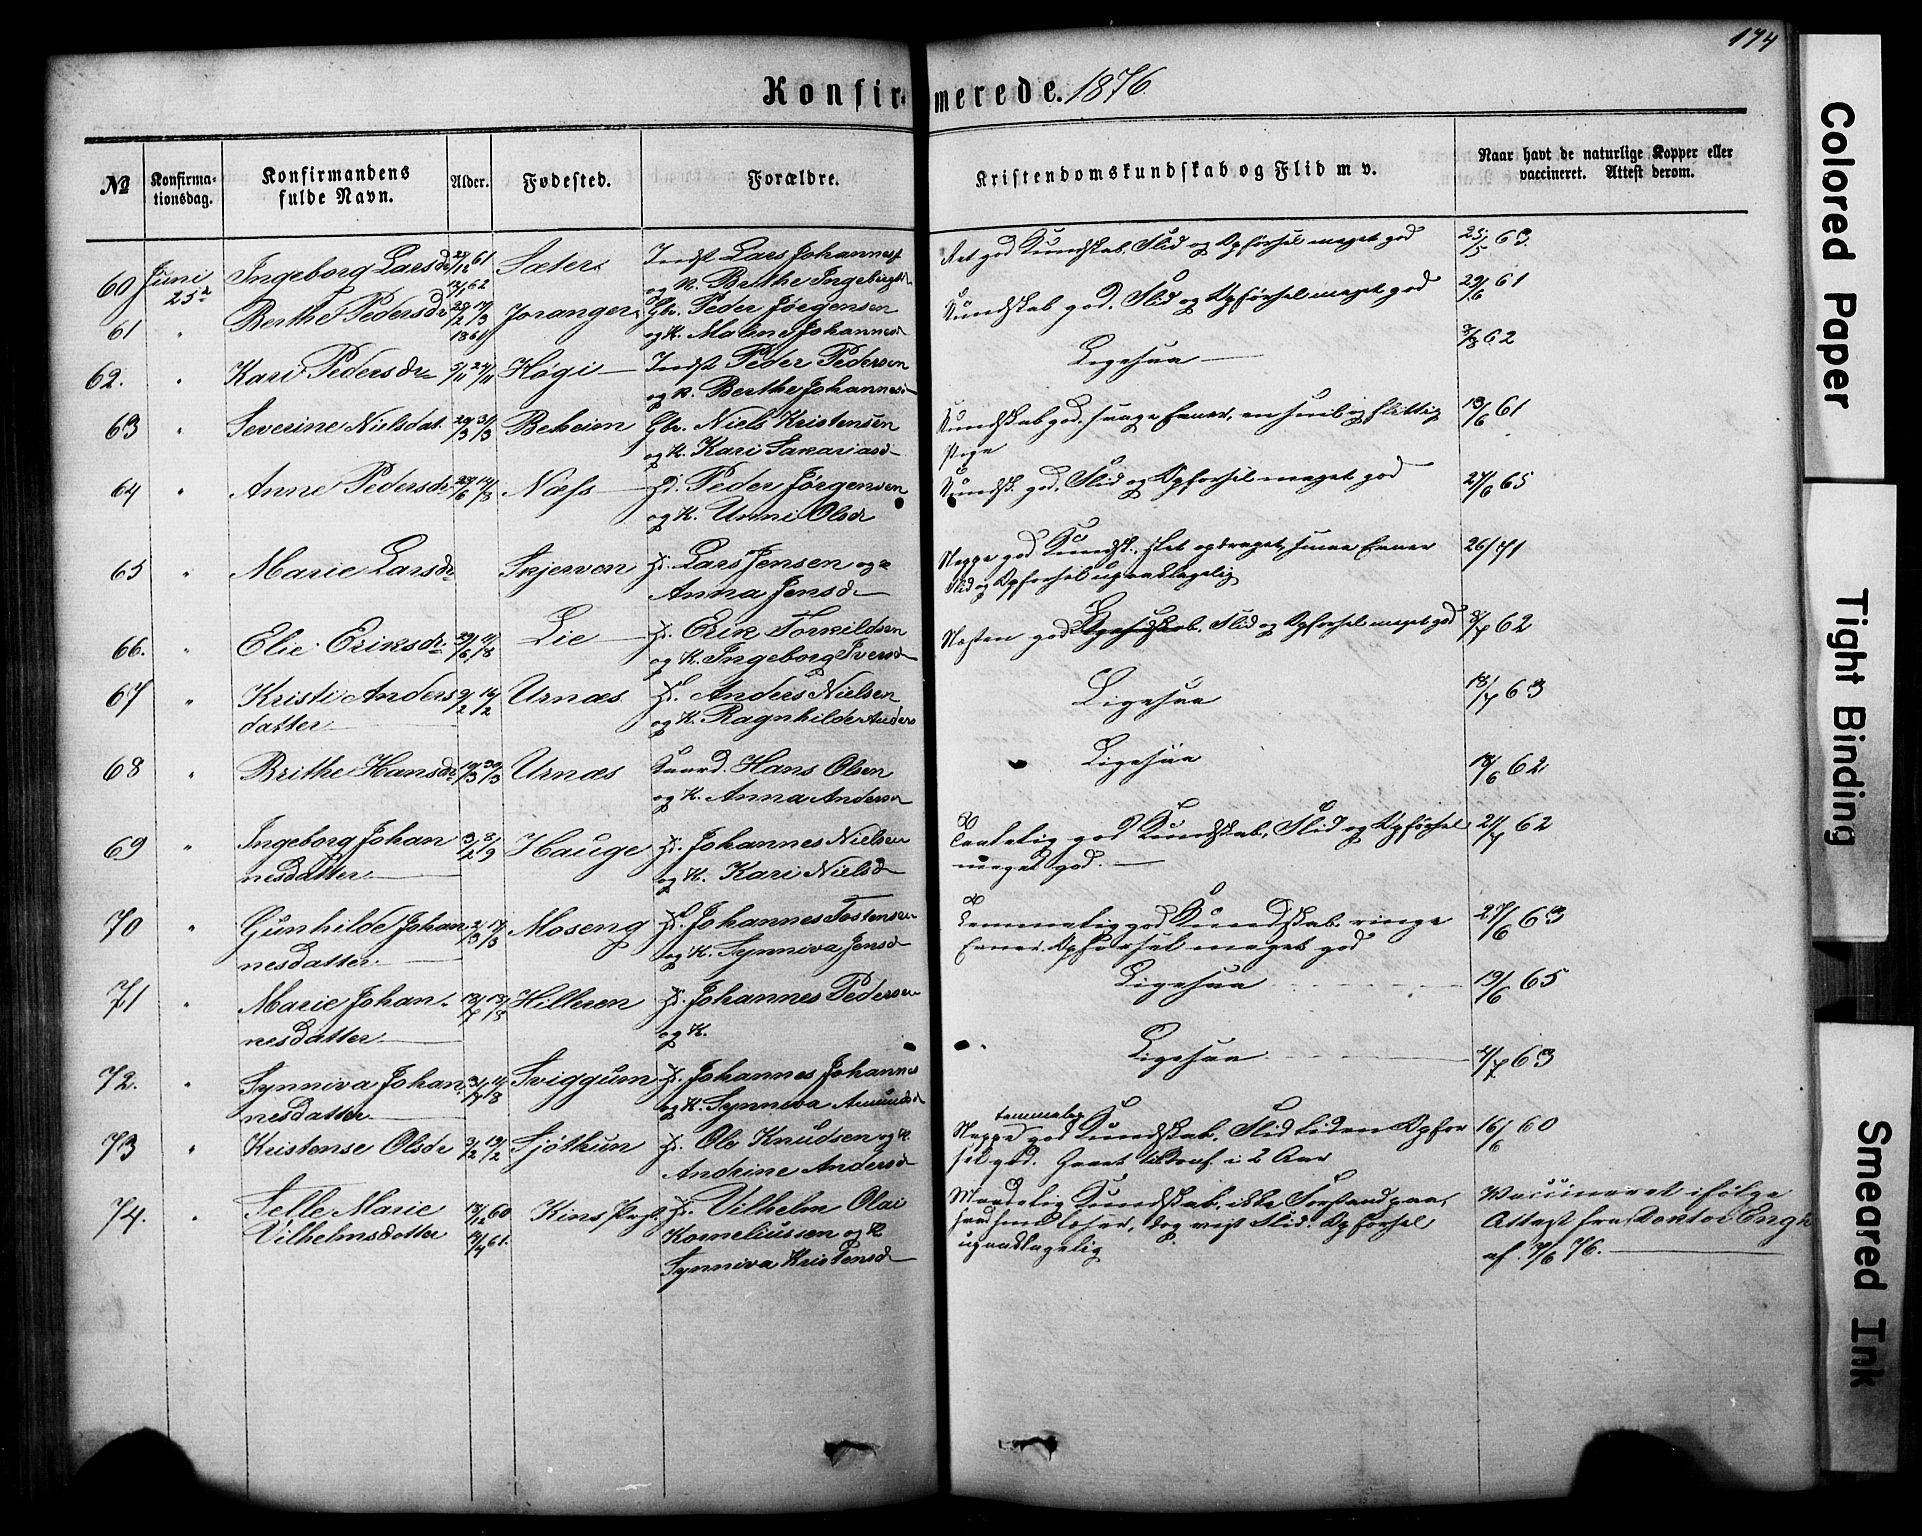 174
Konfirmerede. 1876
№ Konfirmationsdag. Konfirmandens fulde Navn. Alder. Fødested. Forældre. Kristendomskundskab og Flid m v. Naar havt de naturlige Kopper eller vaccineret. Attest derom.
60 Juni 25de Ingeborg Larsdr 61 62 Sæter Indst Lars Johannes og K. Brithe Ingebrigtsd Ret god Kundskab, Flid og Opførsel meget god 25/5 63.
61 " Berthe Pedersdr Joranger Gbr. Peder Jørgensen og K. Malene Johannesd Kundskab god. Flid og Opførsel meget god 29/6 61
62. " Kari Pedersdr 5/11 Høgi Indst Peder Pedersen og K. Berthe Johannesd Ligesaa 62
63 " Severine Nielsdat. 31/3 Beheim Gbr. Niels Kristensen og K. Kari Sakariasd Kundskab god, svage Evner, en snil og flittig Pige 13/6 61
64 " Anne Pedersdr 29/6 14/3 Næss Hd. Peder Jørgensen og K. Unni Olsdr Kundsk. god, Flid og Opførsel meget god 27/6 65
65 " Marie Larsdr Skjerven Hd. Lars Jensen og K Anna Jensd Neppe god Kundsk., slet opdraget, smaa Evner Flid og Opførsel upaaklagelig 26/ 71
66. " Elie Eriksdr 29/6 11/8 Lie Hd. Erik Torkildsen og K. Ingeborg Iversd Næsten god Kundskab. Flid og Opførsel meget god 62
67 " Kristi Andersdatter 9/2 16/2 Urnæs Hd. Anders Nielsen og K. Ragnhilde Anders Ligesaa 18/7 63
68 " Brithe Hansdr 19/3 30/3 Urnæs Hans Olsen og K. Anna Andersd Ligesaa 18/6 62
69 " Ingeborg Johannesdatter 3/2 8/9 Hauge Hd. Johannes Nielsen og K. Kari Nielsd god Kundskab, Flid og Opførsel meget god. 21/7 62
70 " Gunhilde Johannesdatter 2/3 17/3 Moseng Hd. Johannes Tostensen og K. Synniva Jensd Temmelig god Kundskab, ringe Evner. Opførsel meget god 27/6 63
71 " Marie Johannesdatter Hilleren Hd. Johannes Pedersen og K. Ligesaa 19/6 65
72. " Synniva Johannesdatter Sviggum Hd. Johannes Johannes og K. Synniva Amundsd Ligesaa 2/7 63
73 " Kristense Olsdr 3/2 19/2 Sjøthun Hd. Ole Knudsen og K. Andrine Andersd Neppe temmelig god Kundskab. Flid liden Opførsel god. Gaaet til Konf. i 2 Aar 16/6 60
74. " Selle Marie Vilhelmsdatter 60 61. Kins Prgj. Hd. Vilhelm Olai Korneliussen og K Synniva Kristensd Maadelig Kundskab, ikke Forstand paa, hvad hun lærer, dog vist Flid. Opførsel upaaklagelig Vaccineret ifølge Attest fra Doktor Engh af. 7/6 76.
Colored Paper
Tight Binding
Smeared Ink